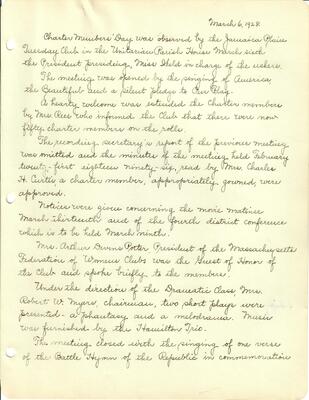 March 6, 1928.
Charter Members' Day was observed by the Jamaica Plain
Tuesday Club in the Unitarian Parish House March sixth
the President presiding, Miss Held in charge of the ushers.
The meeting was opened by the singing of America
the Beautiful and a silent pledge to Our Flag.
A hearty welcome was extended the charter members
by Mrs. Rees who informed the Club that there were now
fifty charter members on the rolls.
The recording secretary's report of the previous meeting
was omitted and the minutes of the meeting held February
twenty-first eighteen ninety-six, read by Mrs. Charles
H. Curtis a charter member, appropriately gowned, were
approved.
Notices were given concerning the movie matinee
March thirteenth and of the fourth district conference
which is to be held March ninth.
Mrs. Arthur Devens Potter President of the Massachusetts
Federation of Womens Clubs was the Guest of Honor of
the Club and spoke briefly to the members.
Under the direction of the Dramatic Class Mrs.
Robert W. Myers, chairman, two short plays were
presented - a phantasy and a melodrama. Music
was furnished by the Hamilton Trio.
The meeting closed with the singing of one verse
of the Battle Hymn of the Republic in commemoration